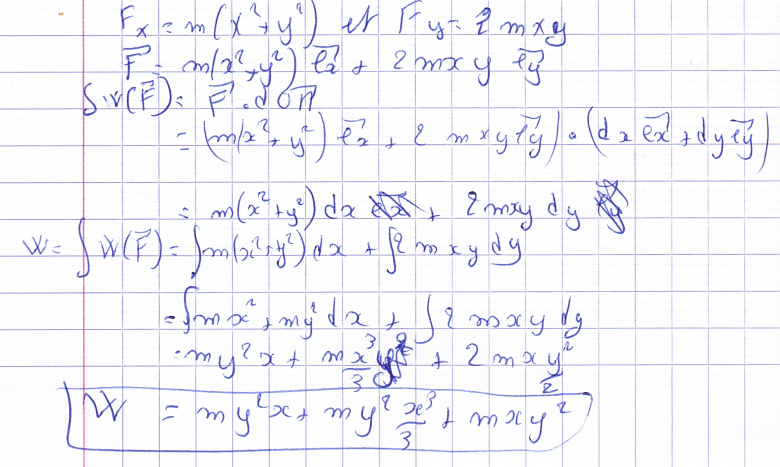 Fx = m(x²+y²) et Fy = 2mxy
F⃗ = m(x²+y²) e⃗x + 2mxy e⃗y
δW(F⃗) = F⃗ . dOM⃗
= (m(x²+y²) e⃗x + 2mxy e⃗y) • (dx e⃗x + dy e⃗y)
= m(x²+y²) dx + 2mxy dy
W = ∫ W(F⃗) = ∫ m(x²+y²) dx + ∫ 2mxy dy
= ∫ mx² + my² dx + ∫ 2mxy dy
= my²x + mx³/3 + 2mxy²/2
W = my²x + my² x³/3 + mxy²